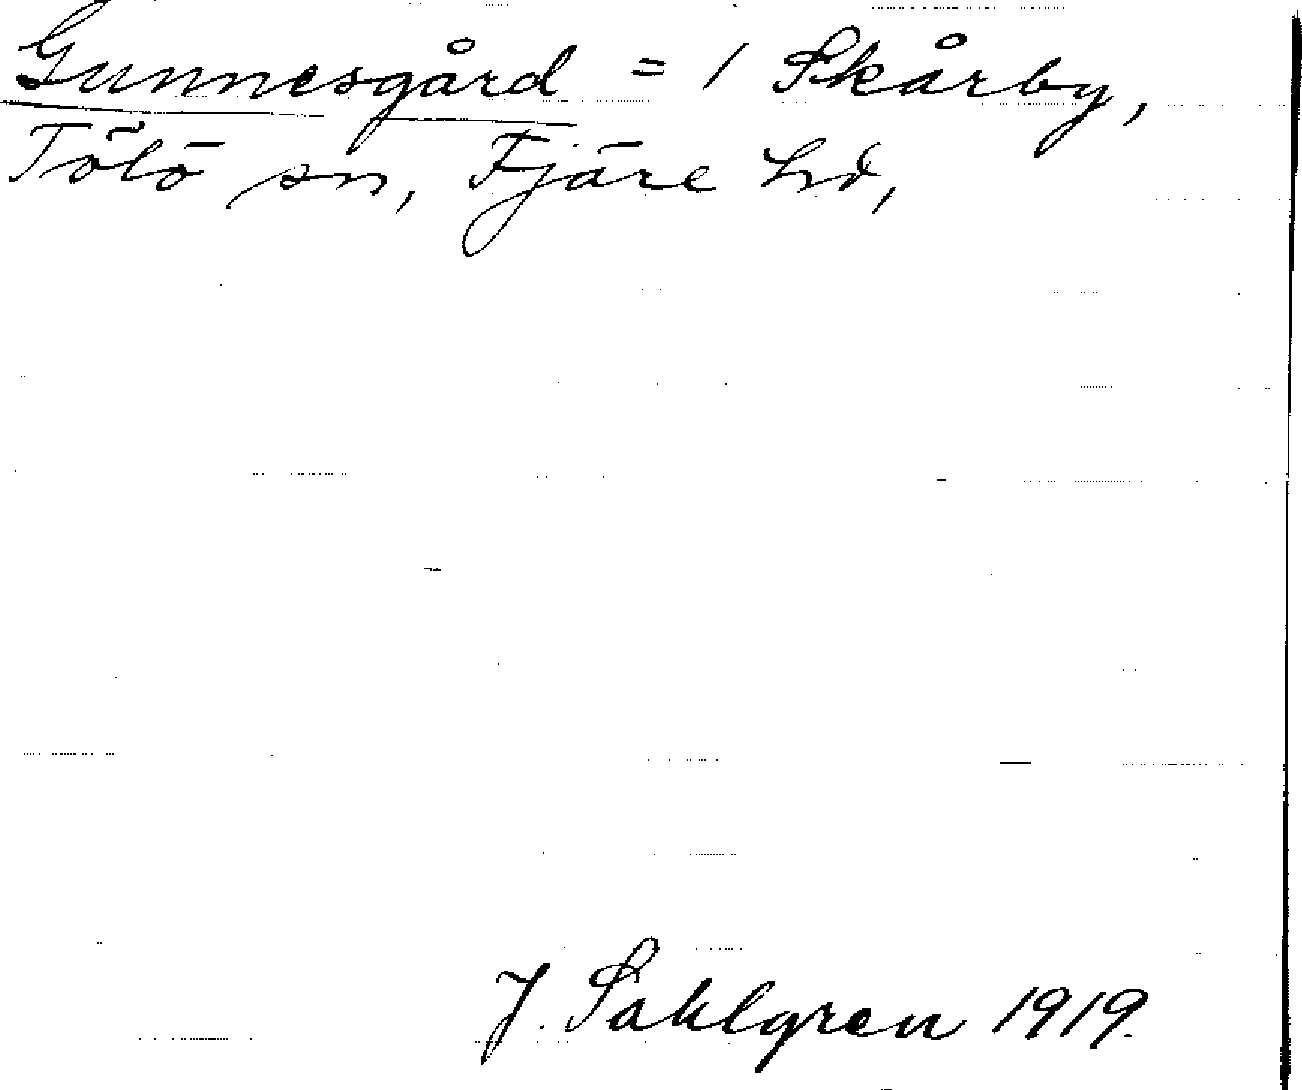 Gunnesgård = 1 Skårby,
Tölö sn, Fjäre hd,
J. Sahlgren 1919.